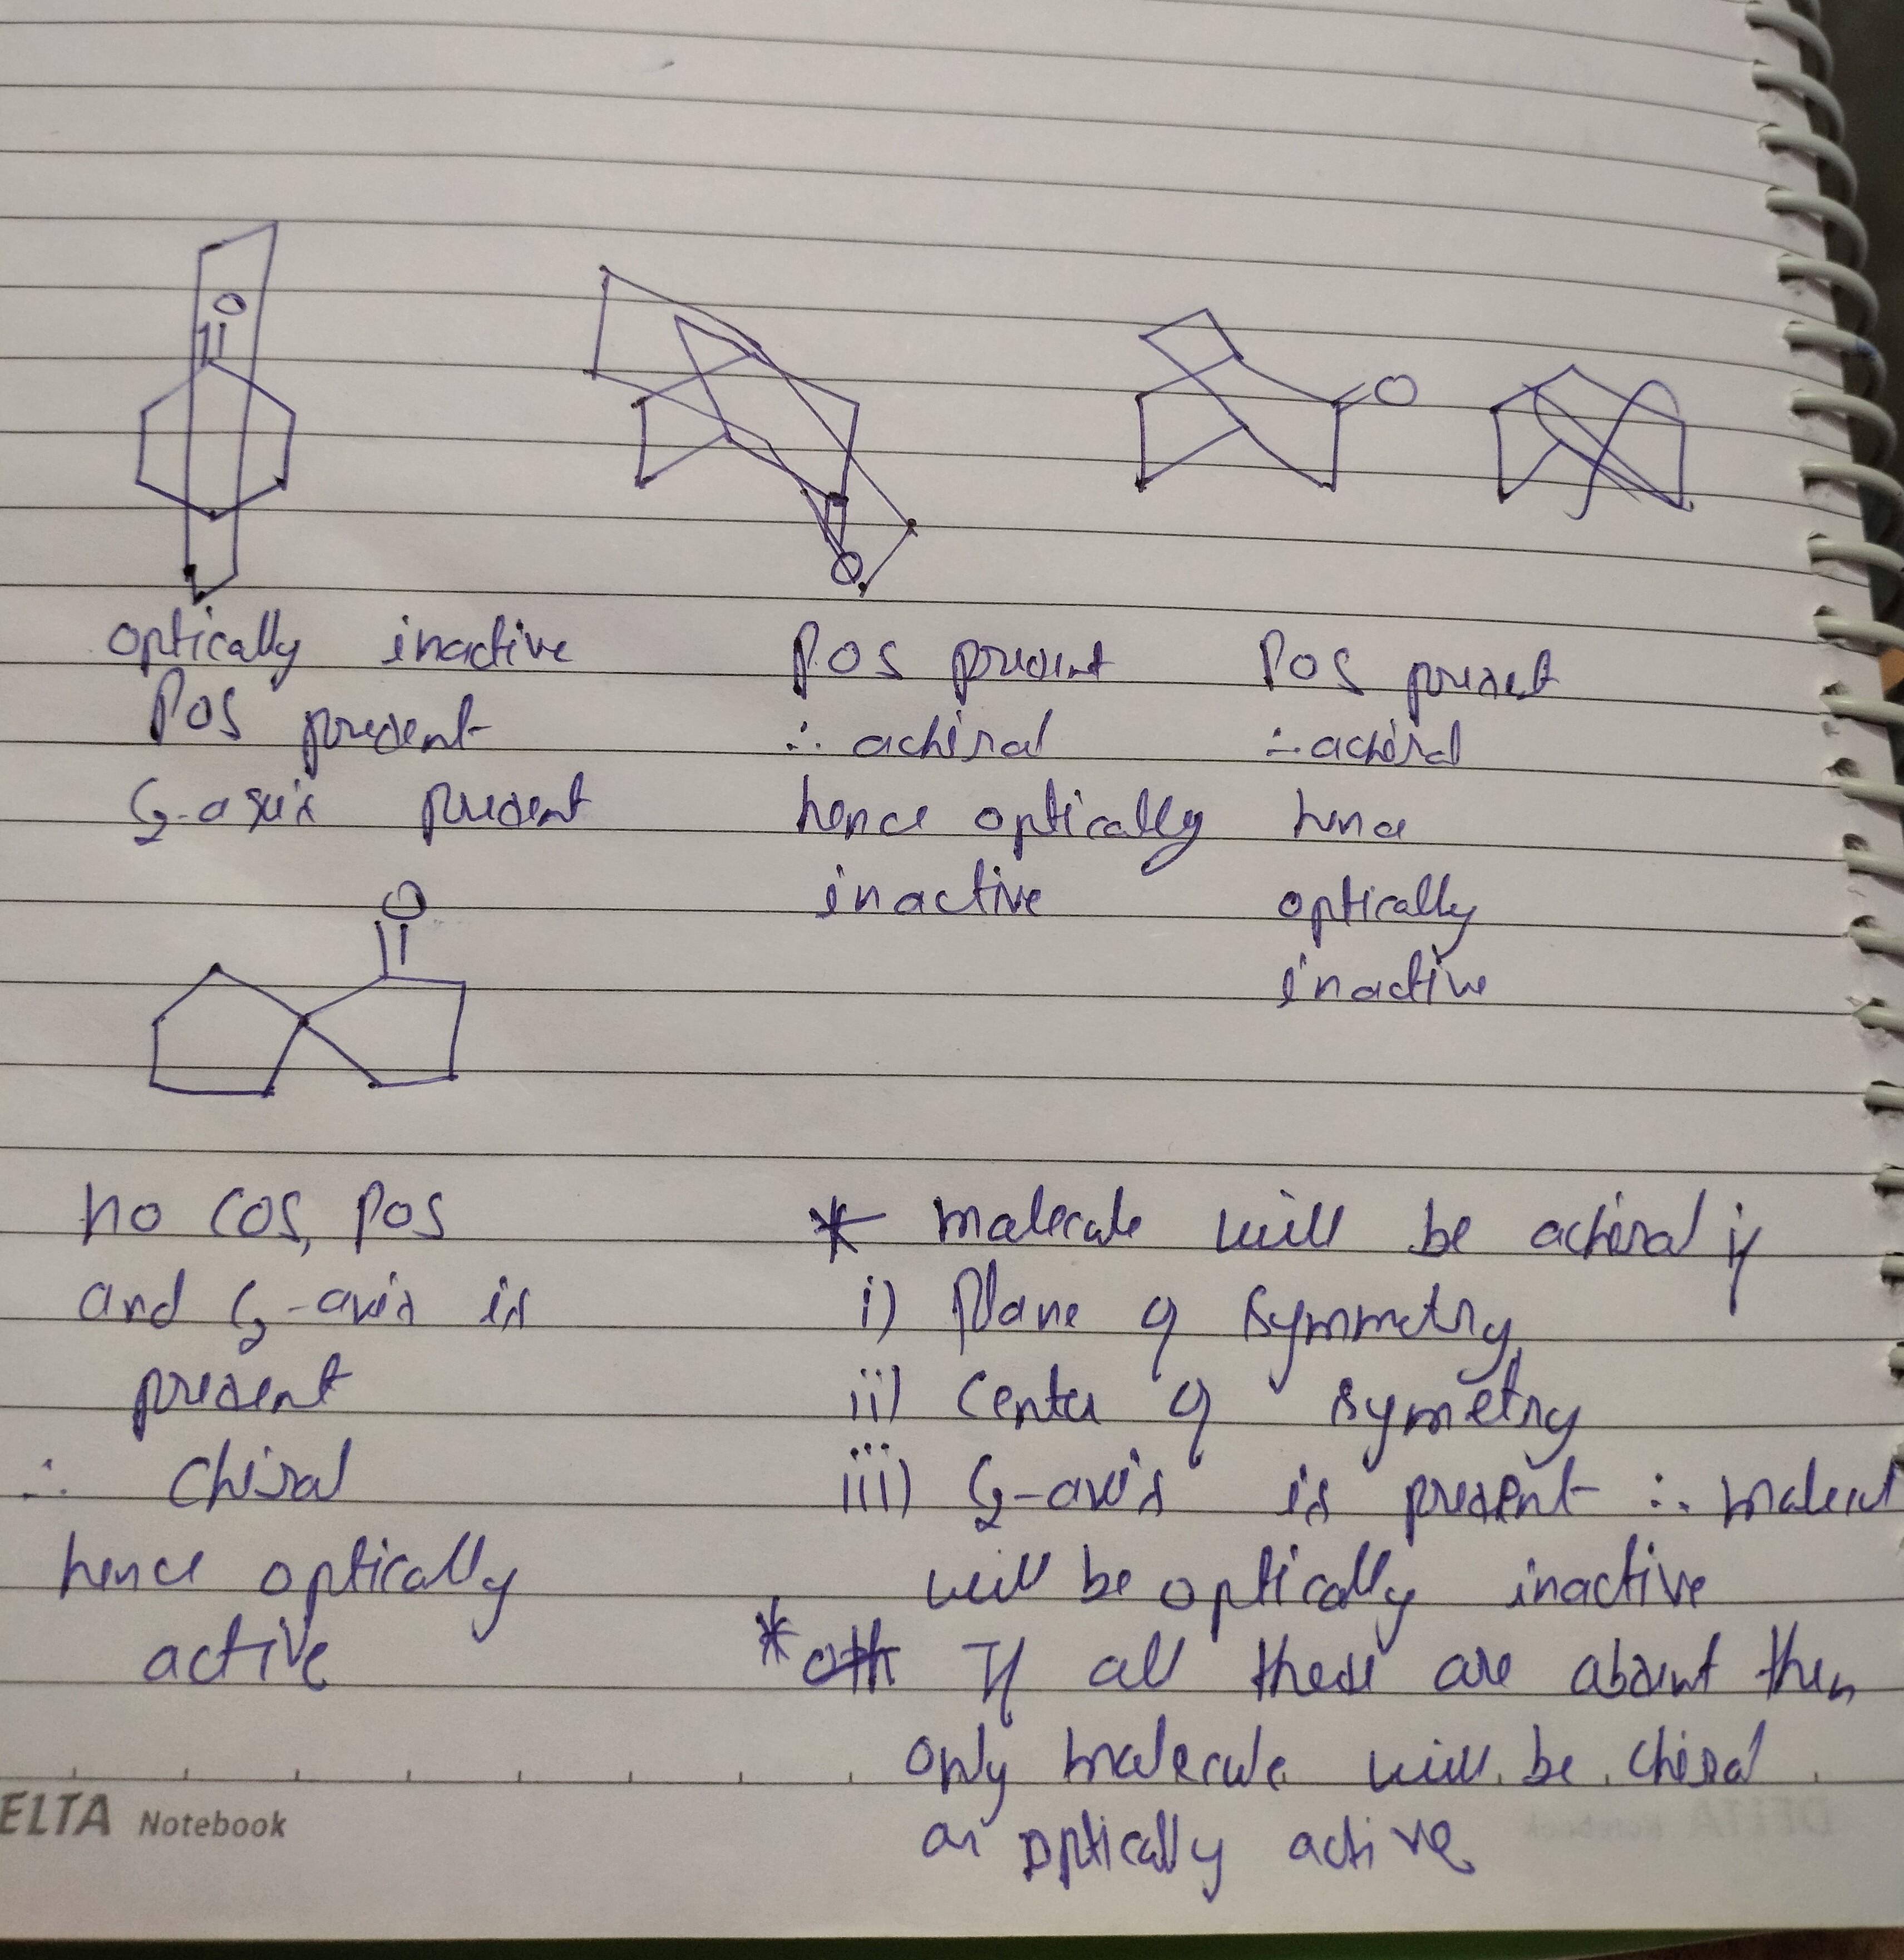 O
O
O
optically inactive
POS present
C2-axis present
P.O.S present
∴ achiral
hence optically
inactive
POS present
∴ achiral
hence
optically
inactive
O
no COS, POS
and C2-axis is
present
∴ Chiral
hence optically
active
* molecule will be achiral if
i) Plane of symmetry
ii) Center of symetry
iii) C2-axis is present ∴ molecul
will be optically inactive
* If all these are absent then
only molecule will be chiral
or optically active
ELTA Notebook